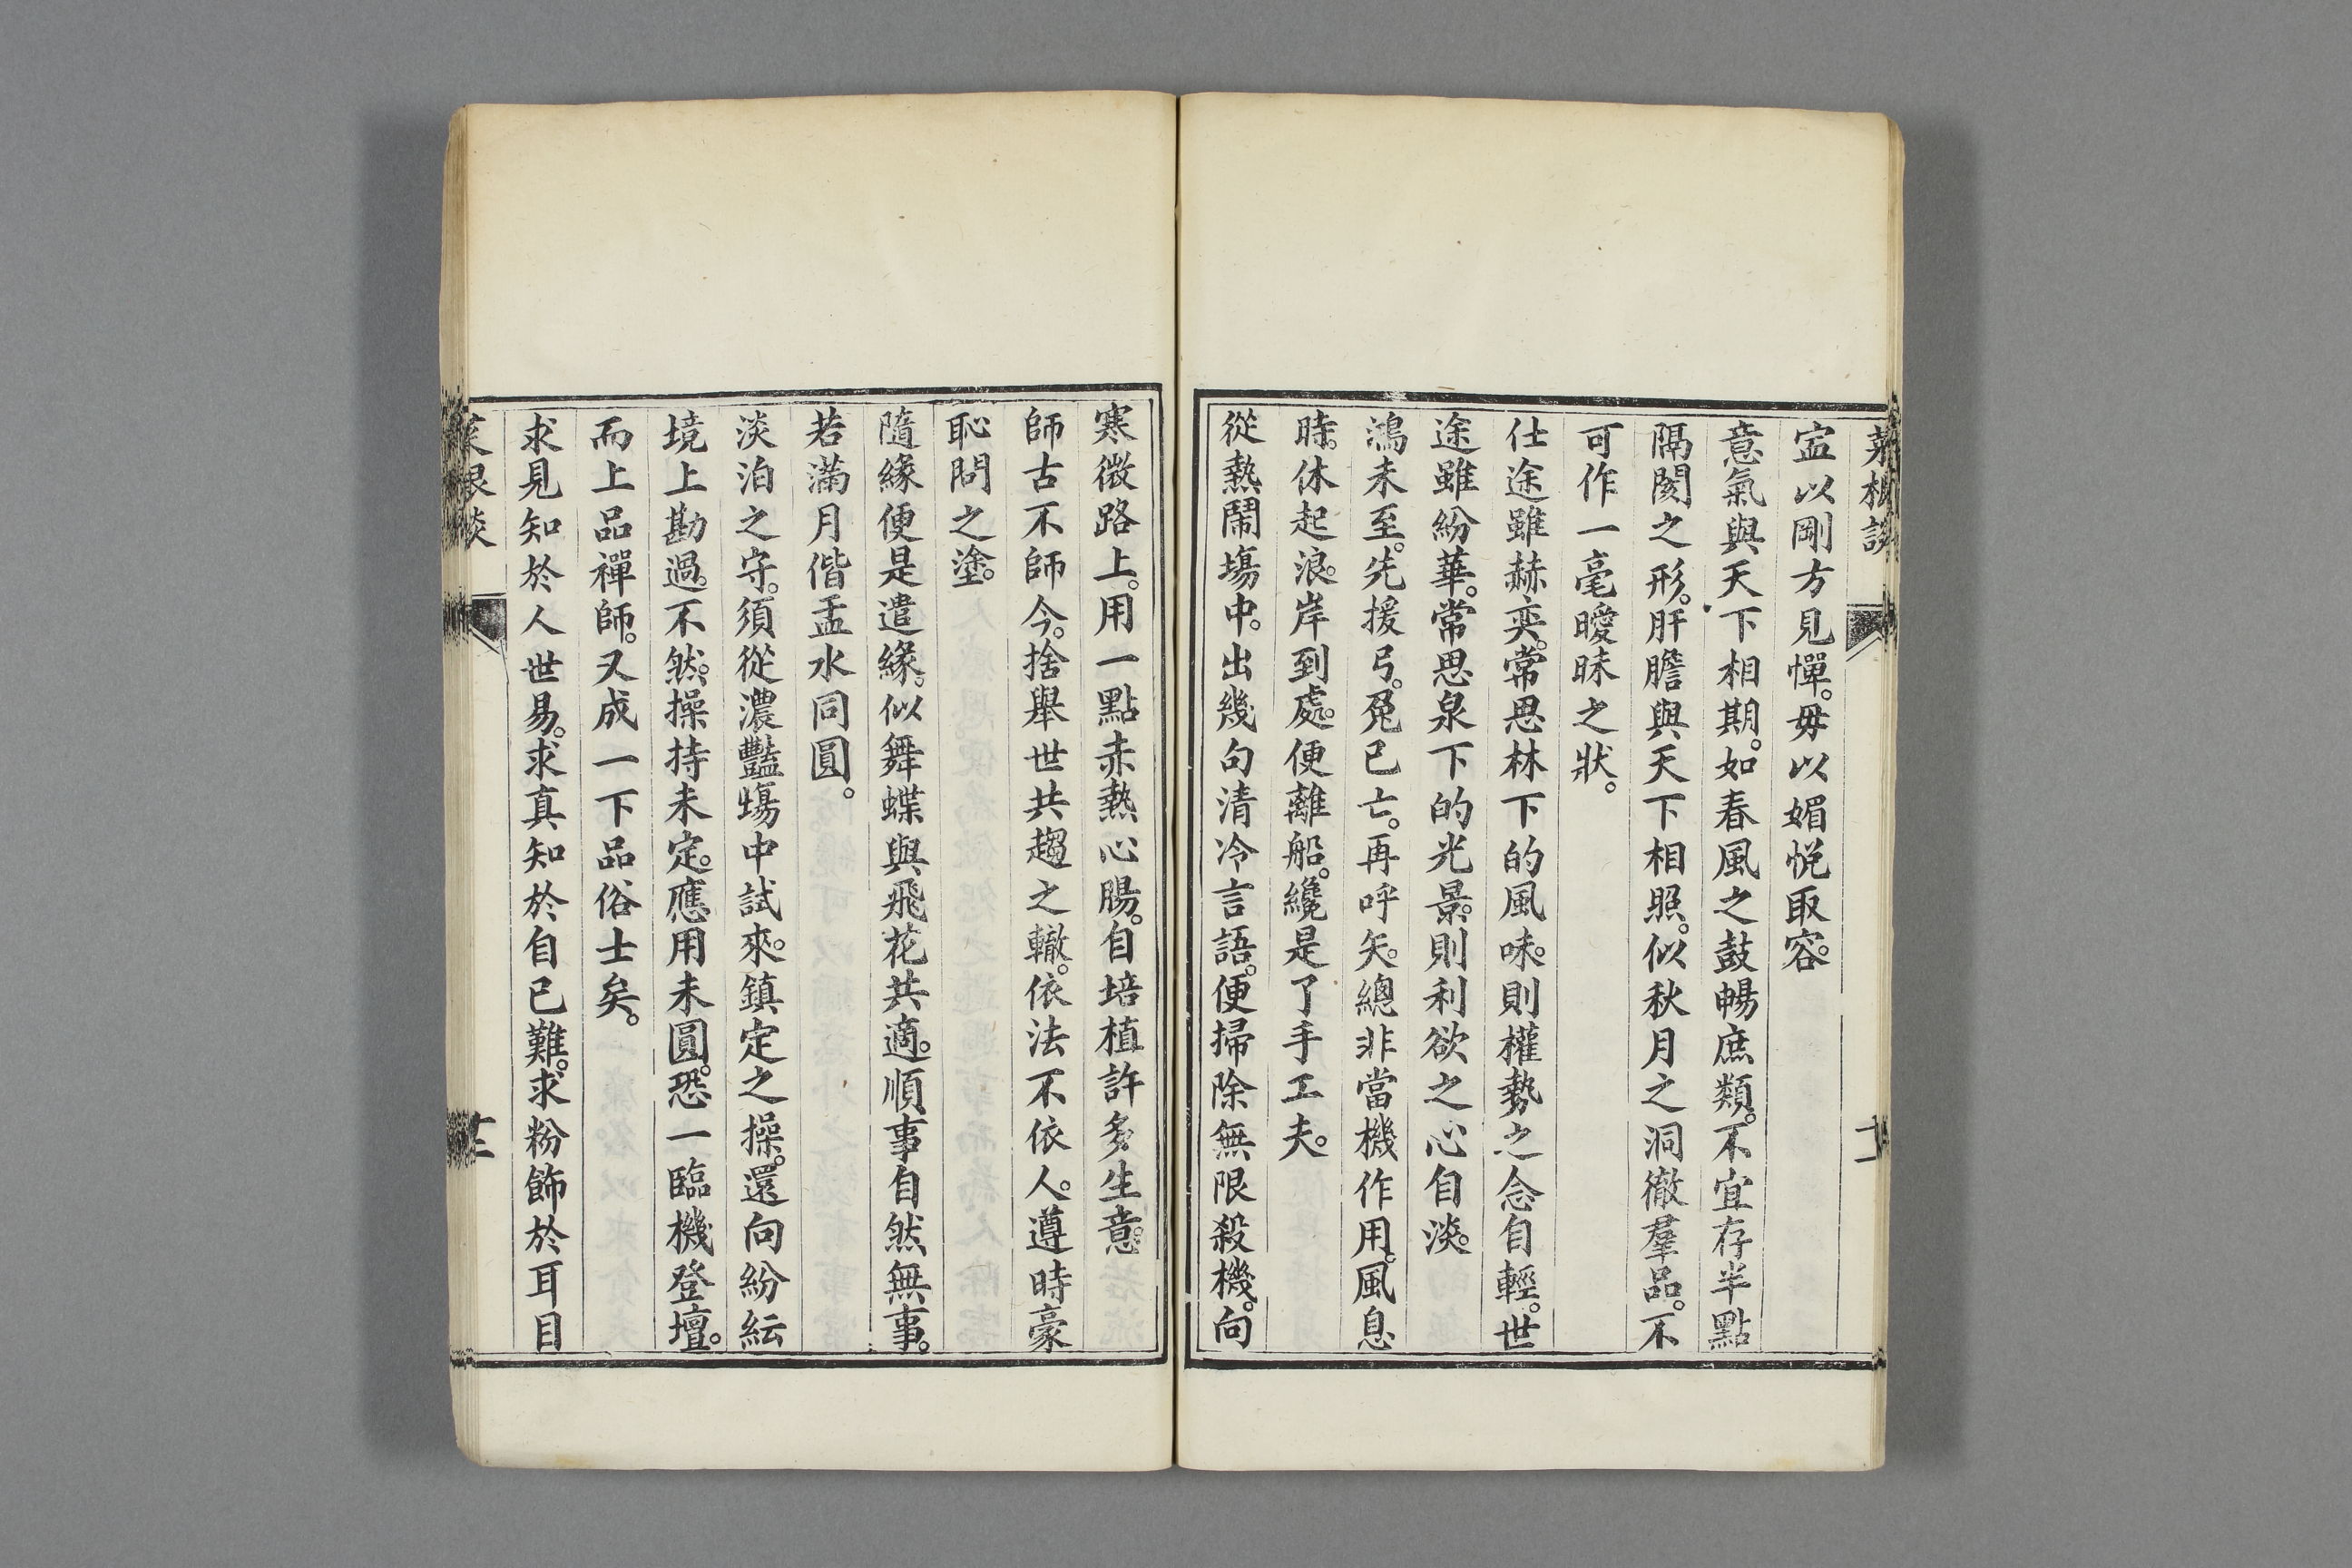 菜根談
寍以剛方見憚。毋以媚悅取容。
意氣與天下相期。如春風之鼓暢庶類。不宜存半點
隔閡之形。肝膽與天下相照。似秋月之洞徹羣品。不
可作一毫曖昧之狀。
仕途雖赫奕。常思林下的風味。則權勢之念自輕。世
途雖紛華。常思泉下的光景。則利欲之心自淡。
鴻未至。先援弓。兔已亡。再呼矢。總非當機作用。風息
時。休起浪。岸到處。便離船。纔是了手工夫。
從熱鬧場中。出幾句清冷言語。便掃除無限殺機。向
寒微路上。用一點赤熱心腸。自培植許多生意。
師古不師今。捨舉世共趨之轍。依法不依人。遵時豪
恥問之塗。
隨緣便是遣緣。似舞蝶與飛花共適。順事自然無事。
若滿月偕盂水同圓。
淡泊之守。須從濃豔場中試來。鎮定之操。還向紛紜
境上勘過。不然。操持未定。應用未圓。恐一臨機登壇。
而上品禪師。又成一下品俗士矣。
求見知於人世易。求真知於自已難。求粉飾於耳目
菜根談